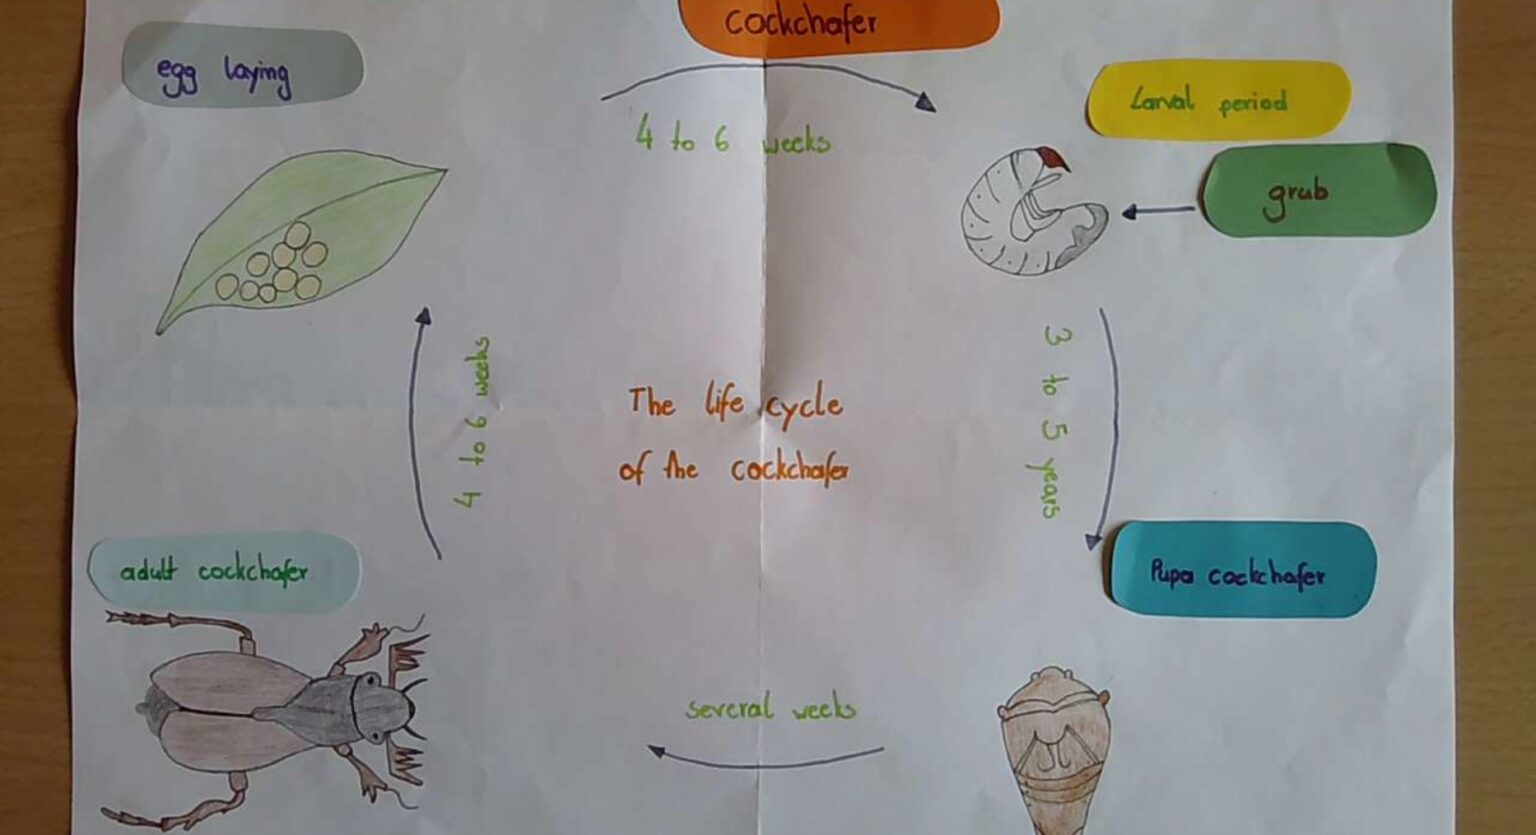 cockchafer
egg laying
Larval period
4 to 6 weeks
grub
4 to 6 weeks
3 to 5 years
The life cycle
of the cockchafer
adult cockchafer
Pupa cockchafer
several weeks